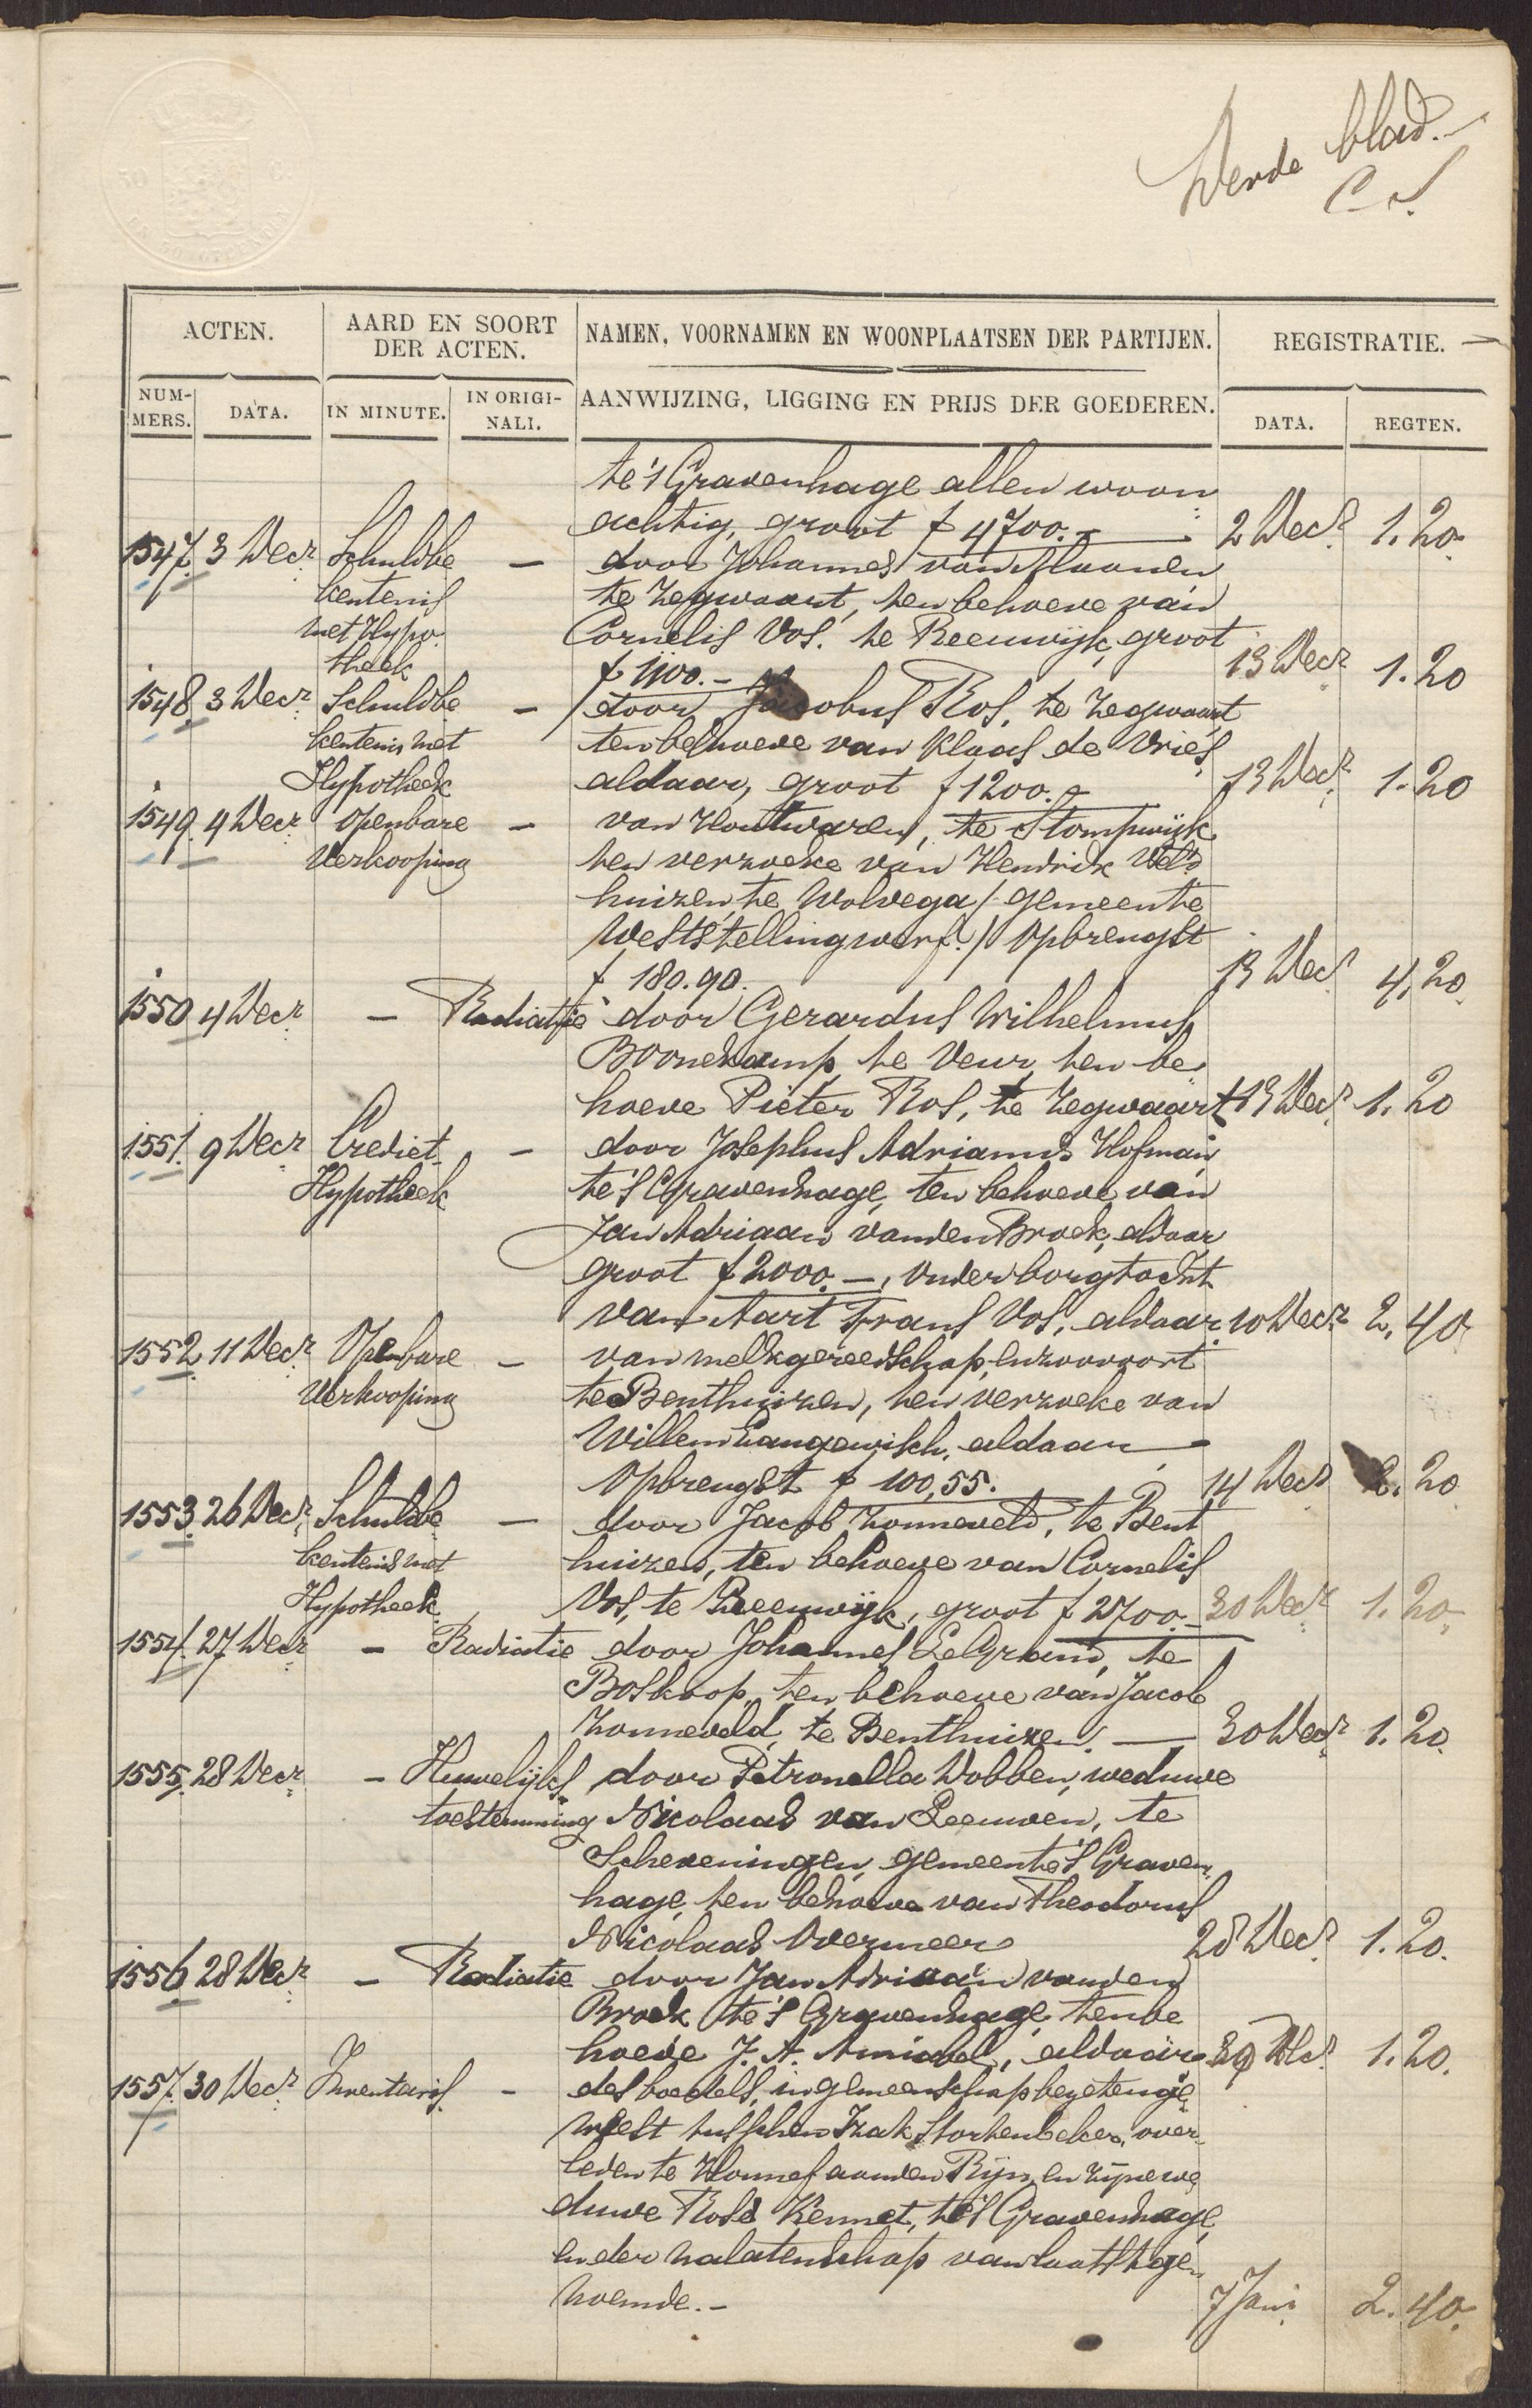 derde blad.-
ACTEN. AARD EN SOORT DER ACTEN. NAMEN, VOORNAMEN EN WOONPLAATSEN DER PARTIJEN. REGISTRATIE.
NUMMERS. DATA. IN MINUTE. IN ORIGINALI. AANWIJZING, LIGGING EN PRIJS DER GOEDEREN. DATA. REGTEN.
te 's Gravenhage allen woon
achtig, groot f 4700.- 2 Decr. 1.20.
1547. 3 Decr. Schuldbe - door Johannes van
kentenis te Zegwaart, ten behoeve van
met Hypo Cornelis Vos. te Reeuwijk, groot
theek f 1100.- 13 Decr. 1.20
1548. 3 Decr. Schuldbe - door Jacobus Ros, te Zegwaart
kentenis met ten behoeve van Klaas de Vries,
Hypotheek aldaar, groot f 1200.- 13 Decr. 1.20
1549. 4 Decr. Openbare - van Houtwaren, te Stompwijk
Verkooping ten verzoeke van Hendrik Veld
huizen, te Wolvega / gemeente
Weststellingwerf. / Opbrengst
f 180.90. 13 Decr. 4.20
1550 4 Decr. - Radiatie door Gerardus Wilhelmus
Boonekamp, te Veur, ten be
hoeve Pieter Ros, te Zegwaart 13 Decr. 1.20
1551. 9 Decr. Crediet - door Josephus Adrianus Hofman
Hypotheek te 's Gravenhage, ten behoeve van
Jan Adriaan van den Broek, aldaar
groot f 2000.-, onder borgtocht
van Aart Frans Vos, aldaar. 10 Decr. 2.40
1552 11 Decr. Openbare - van melkgereedschap, enzoovoort
Verkooping te Benthuizen, ten verzoeke van
Willem Langewisch, aldaar -
Opbrengst f 100,55. 14 Decr. 2.20
1553. 26 Decr. Schuldbe - door Jacob Zonneveld, te Bent
kentenis met huizen, ten behoeve van Cornelis
Hypotheek Vos, te Reeuwijk, groot f 2700.- 30 Decr. 1.20
1554. 27 Decr. - Radiatie door Johannes LeGrand, te
Boskoop, ten behoeve van Jacob
Zonneveld, te Benthuizen. - 30 Decr. 1.20.
1555. 28 Decr. - Huwelijks door Petronella Dobben, weduwe
toestemming Nicolaas van Leeuwen, te
Scheveningen, gemeente 's Graven
hage, ten behoeve van Theodorus
Nicolaas Overmeer 28 Decr. 1.20.
1556 28 Decr. - Radiatie door Jan Adriaan van den
Broek te 's Gravenhage ten be
hoeve J. A. Amiabel, aldaar. Decr. 1.20.
1557. 30 Decr. Inventaris. - des boedels, in gemeenschap bezeten ge
weest tusschen Izak Stortenbeker, over
leden te Honnef aan den Rijn, en zijne we
duwe Rose Kennet, te 's Gravenhage,
en der nalatenschap van laatstgen
noemde. - 7 Jani 2.40.